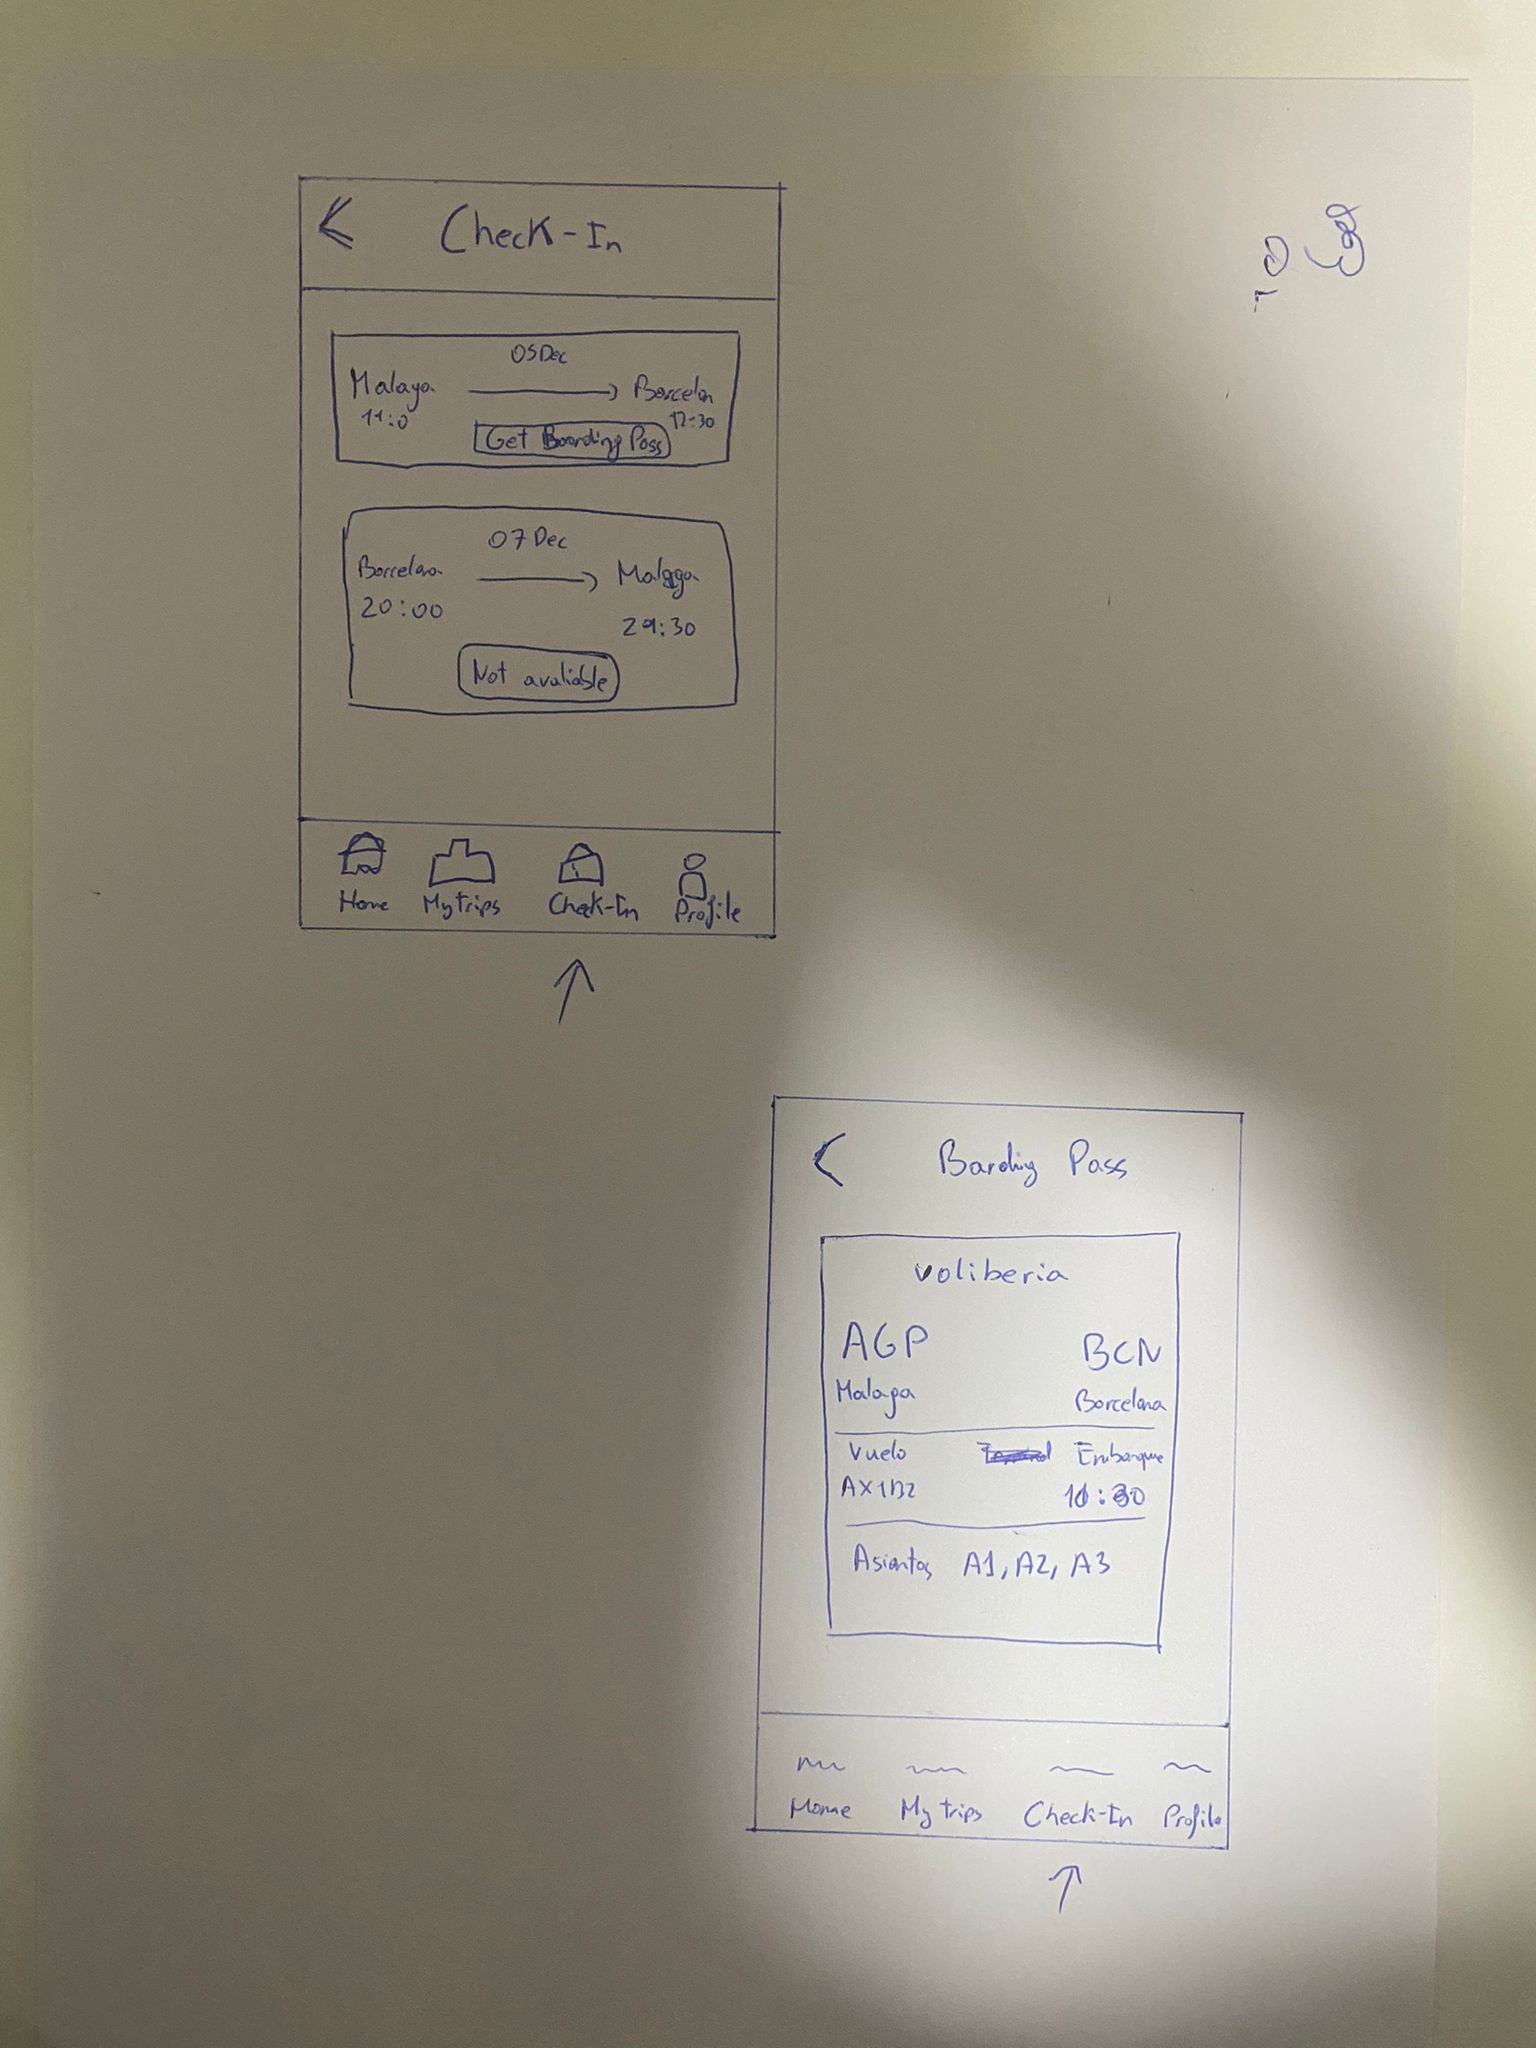 Check-In
05 Dec
Malaga → Barcelon
11:0 12:30
Get Boarding Pass
07 Dec
Barcelona → Malaga
20:00
29:30
Not avaliable
Home My trips Check-In Profile
Barding Pass
voliberia
AGP BCN
Malaga Barcelona
Vuelo Embarque
AX1B2
Asientos A1, A2, A3
Home My trips Check-In Profile